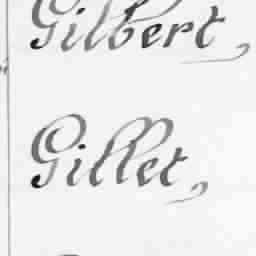 Gilbert,
Gillet,